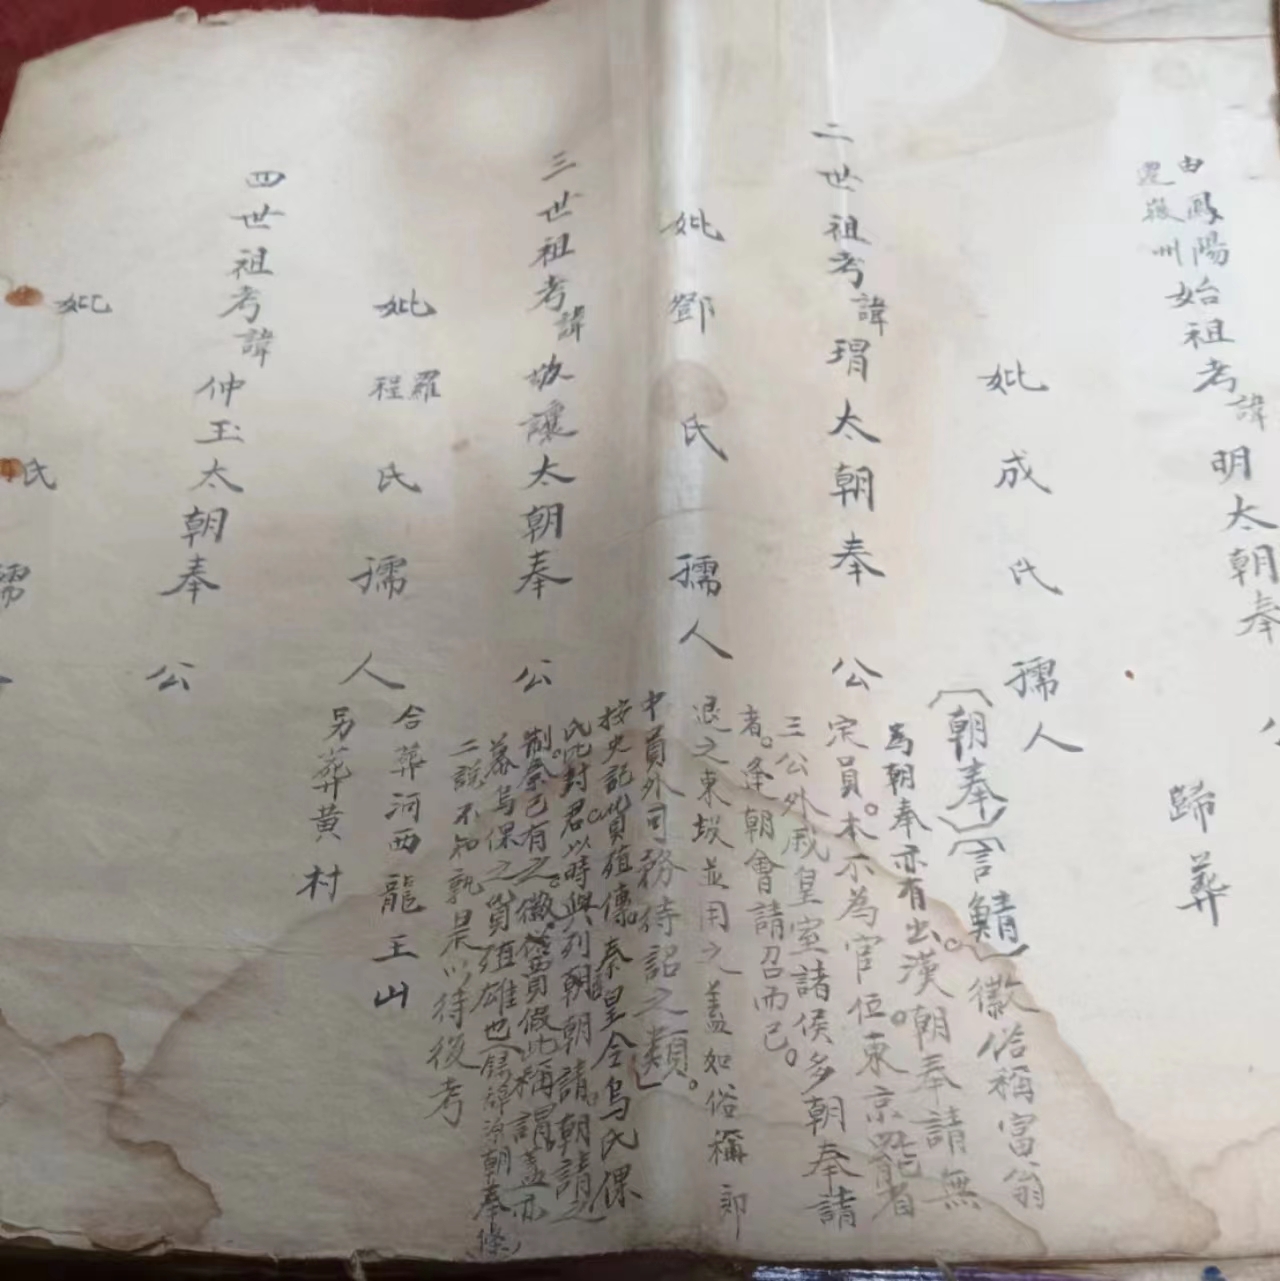 由鳳陽
遷徽州
始祖考諱明太朝奉公
歸葬
妣成氏孺人
〔朝奉〕〔言鯖〕徽俗稱富翁
為朝奉亦有出。漢朝奉請無
定員。本不為官位。東京罷省
三公外戚皇室諸侯多朝奉請
者。逢朝會請召而已。
退之東坡並用之蓋如俗稱郎
中員外司務待詔之類。
二世祖考諱瑁太朝奉公
妣鄧氏孺人
按史記貨殖傳秦皇令烏氏倮
氏比封君以時與列朝朝請。朝請之
制秦已有之。徽俗賈假此稱謂蓋亦
慕烏保之貨殖雄也(錄辭源朝奉條)
二說不知孰是以待後考
三世祖考諱敬讓太朝奉公
妣羅程氏孺人
合葬河西龍王山
另葬黃村
四世祖考諱仲玉太朝奉公
妣 氏孺人